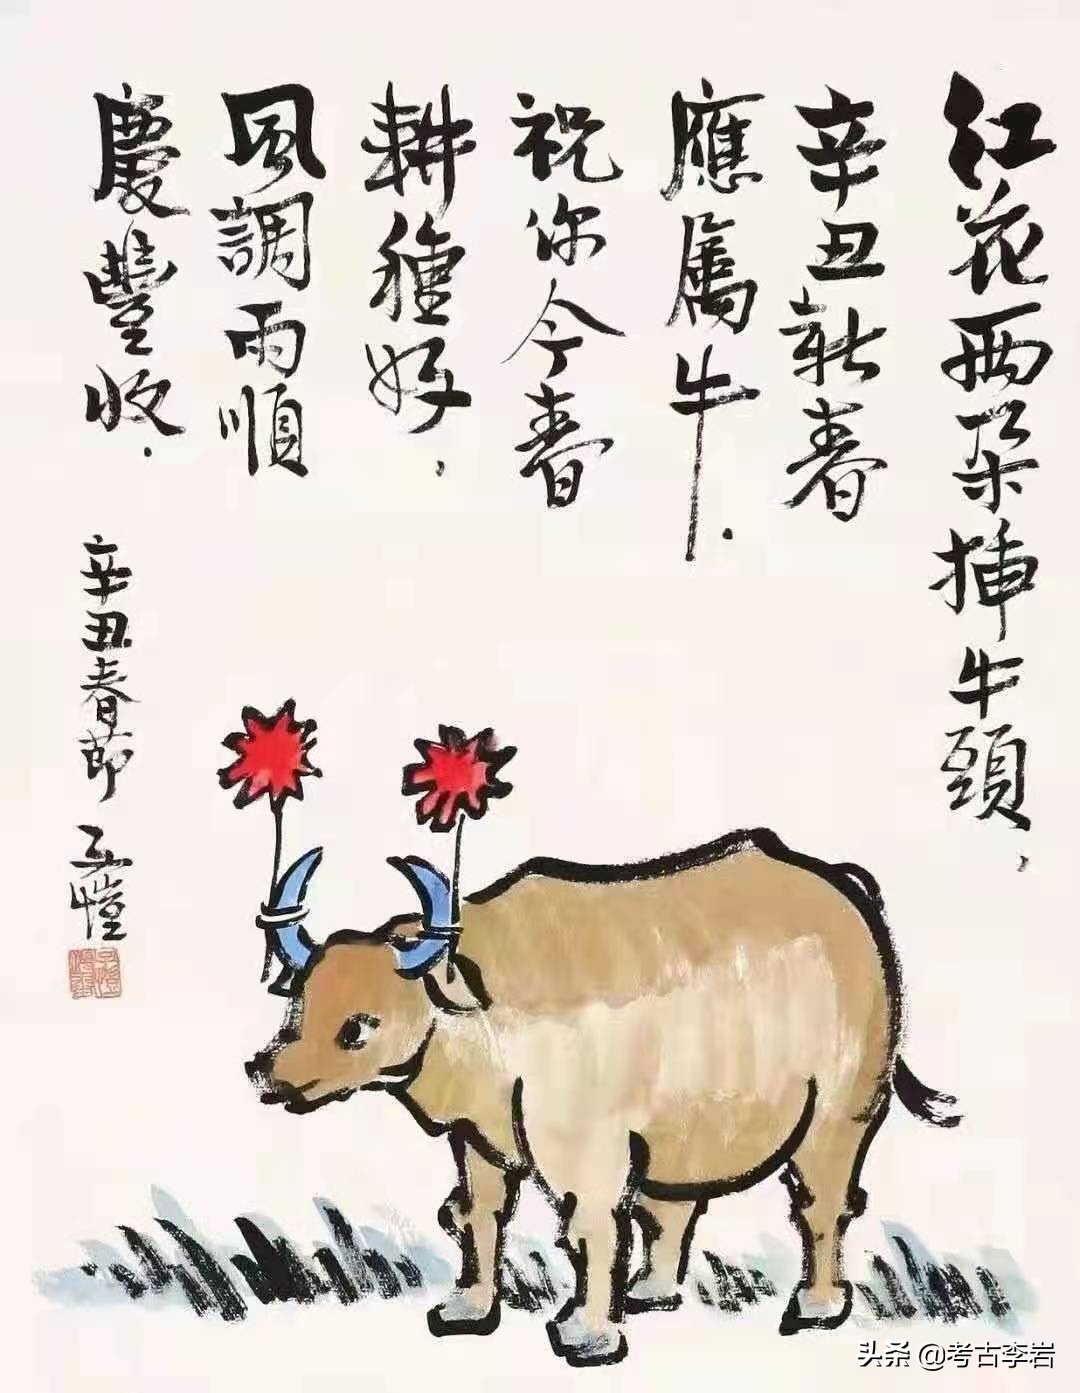 红花两朶揷牛頭，
辛丑新春
應屬牛．
祝你今春
耕種好，
風調雨順
慶豐收．
辛丑春節 子愷
头条 @考古李岩